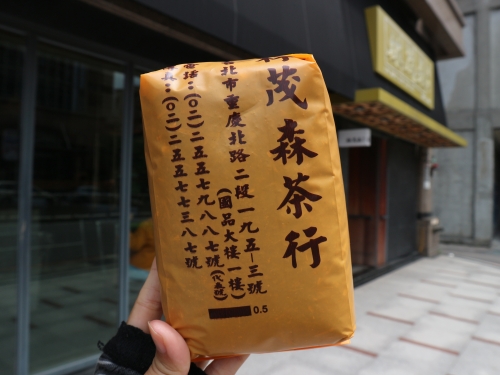 茂森茶行
北市重慶北路二段一九五－三號
(國品大樓一樓)
電話：(〇二)二五五七九八八七號(代表號)
真：(〇二)二五五七七三八七號
0.5